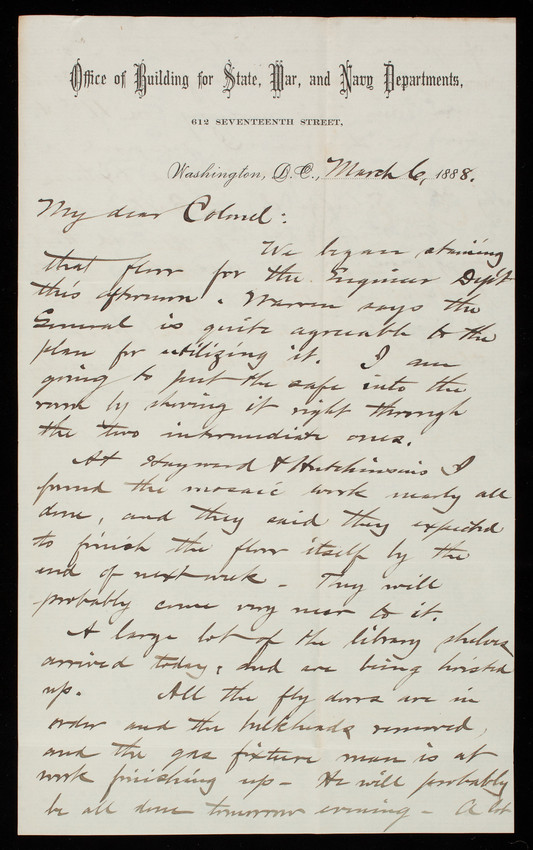 Office of Building for State, War, and Navy Departments,
612 SEVENTEENTH STREET,
Washington, D.C., March 6, 1888.
My dear Colonel:
We began staining
that floor for the Engineer Dept
this afternoon. Warren says the
General is quite agreeable to the
plan for utilizing it. I am
going to put the safe into the
room by shoving it right through
the two intermediate ones.
At Hayward & Hutchinson's I
found the mosaic work nearly all
done, and they said they expected
to finish the floor itself by the
end of next week - They will
probably come very near to it.
A large lot of the library shelves
arrived today, and are being hoisted
up. All the fly doors are in
order and the bulkheads removed,
and the gas fixture man is at
work finishing up - He will probably
be all done tomorrow evening - A lot